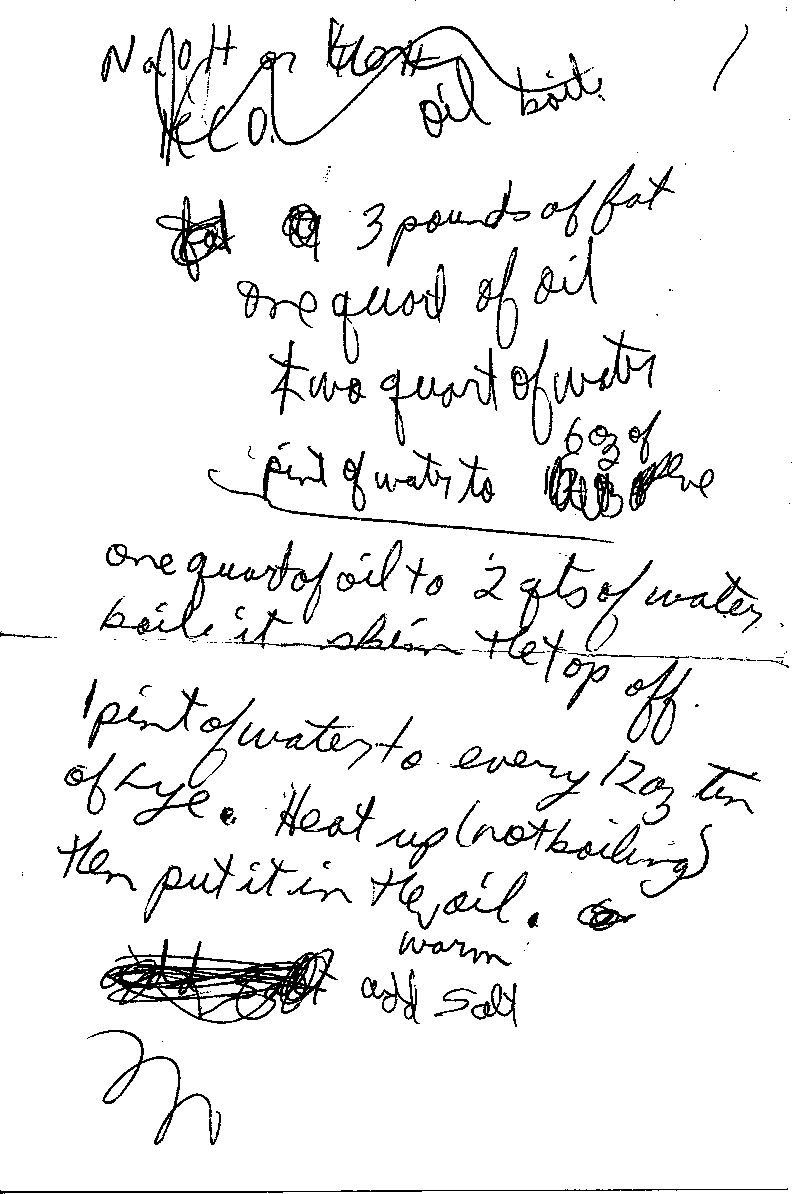 NaOH or
oil boil
3 pounds of fat
one quart of oil
two quart of water
6 oz of
pint of water to
one quart of oil to 2 qts of water
boil it skim the top off.
1 pint of water to every 12 oz tin
of Lye. Heat up (not boiling)
then put it in the oil.
warm
add salt